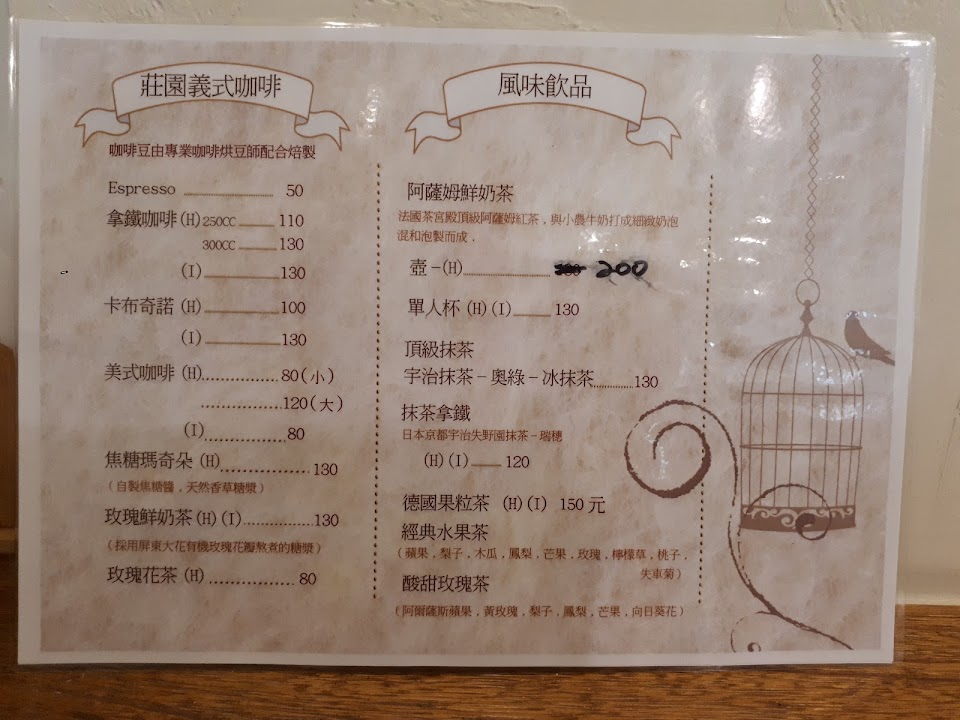 莊園義式咖啡
咖啡豆由專業咖啡烘豆師配合焙製
Espresso 50
拿鐵咖啡 (H) 250CC 110
300CC 130
(I) 130
卡布奇諾 (H) 100
(I) 130
美式咖啡 (H) 80(小)
120(大)
(I) 80
焦糖瑪奇朵 (H) 130
(自製焦糖醬,天然香草糖漿)
玫瑰鮮奶茶(H)(I) 130
(採用屏東大花有機玫瑰花瓣熬煮的糖漿)
玫瑰花茶 (H) 80
風味飲品
阿薩姆鮮奶茶
法國茶宮殿頂級阿薩姆紅茶,與小農牛奶打成細緻奶泡
混和泡製而成.
壺-(H) 200
單人杯 (H)(I) 130
頂級抹茶
宇治抹茶-奧綠-冰抹茶 130
抹茶拿鐵
日本京都宇治失野園抹茶-瑞穗
(H)(I) 120
德國果粒茶 (H)(I) 150 元
經典水果茶
(蘋果,梨子,木瓜,鳳梨,芒果,玫瑰,檸檬草,桃子.
失車菊)
酸甜玫瑰茶
(阿爾薩斯蘋果,黃玫瑰,梨子,鳳梨,芒果,向日葵花)